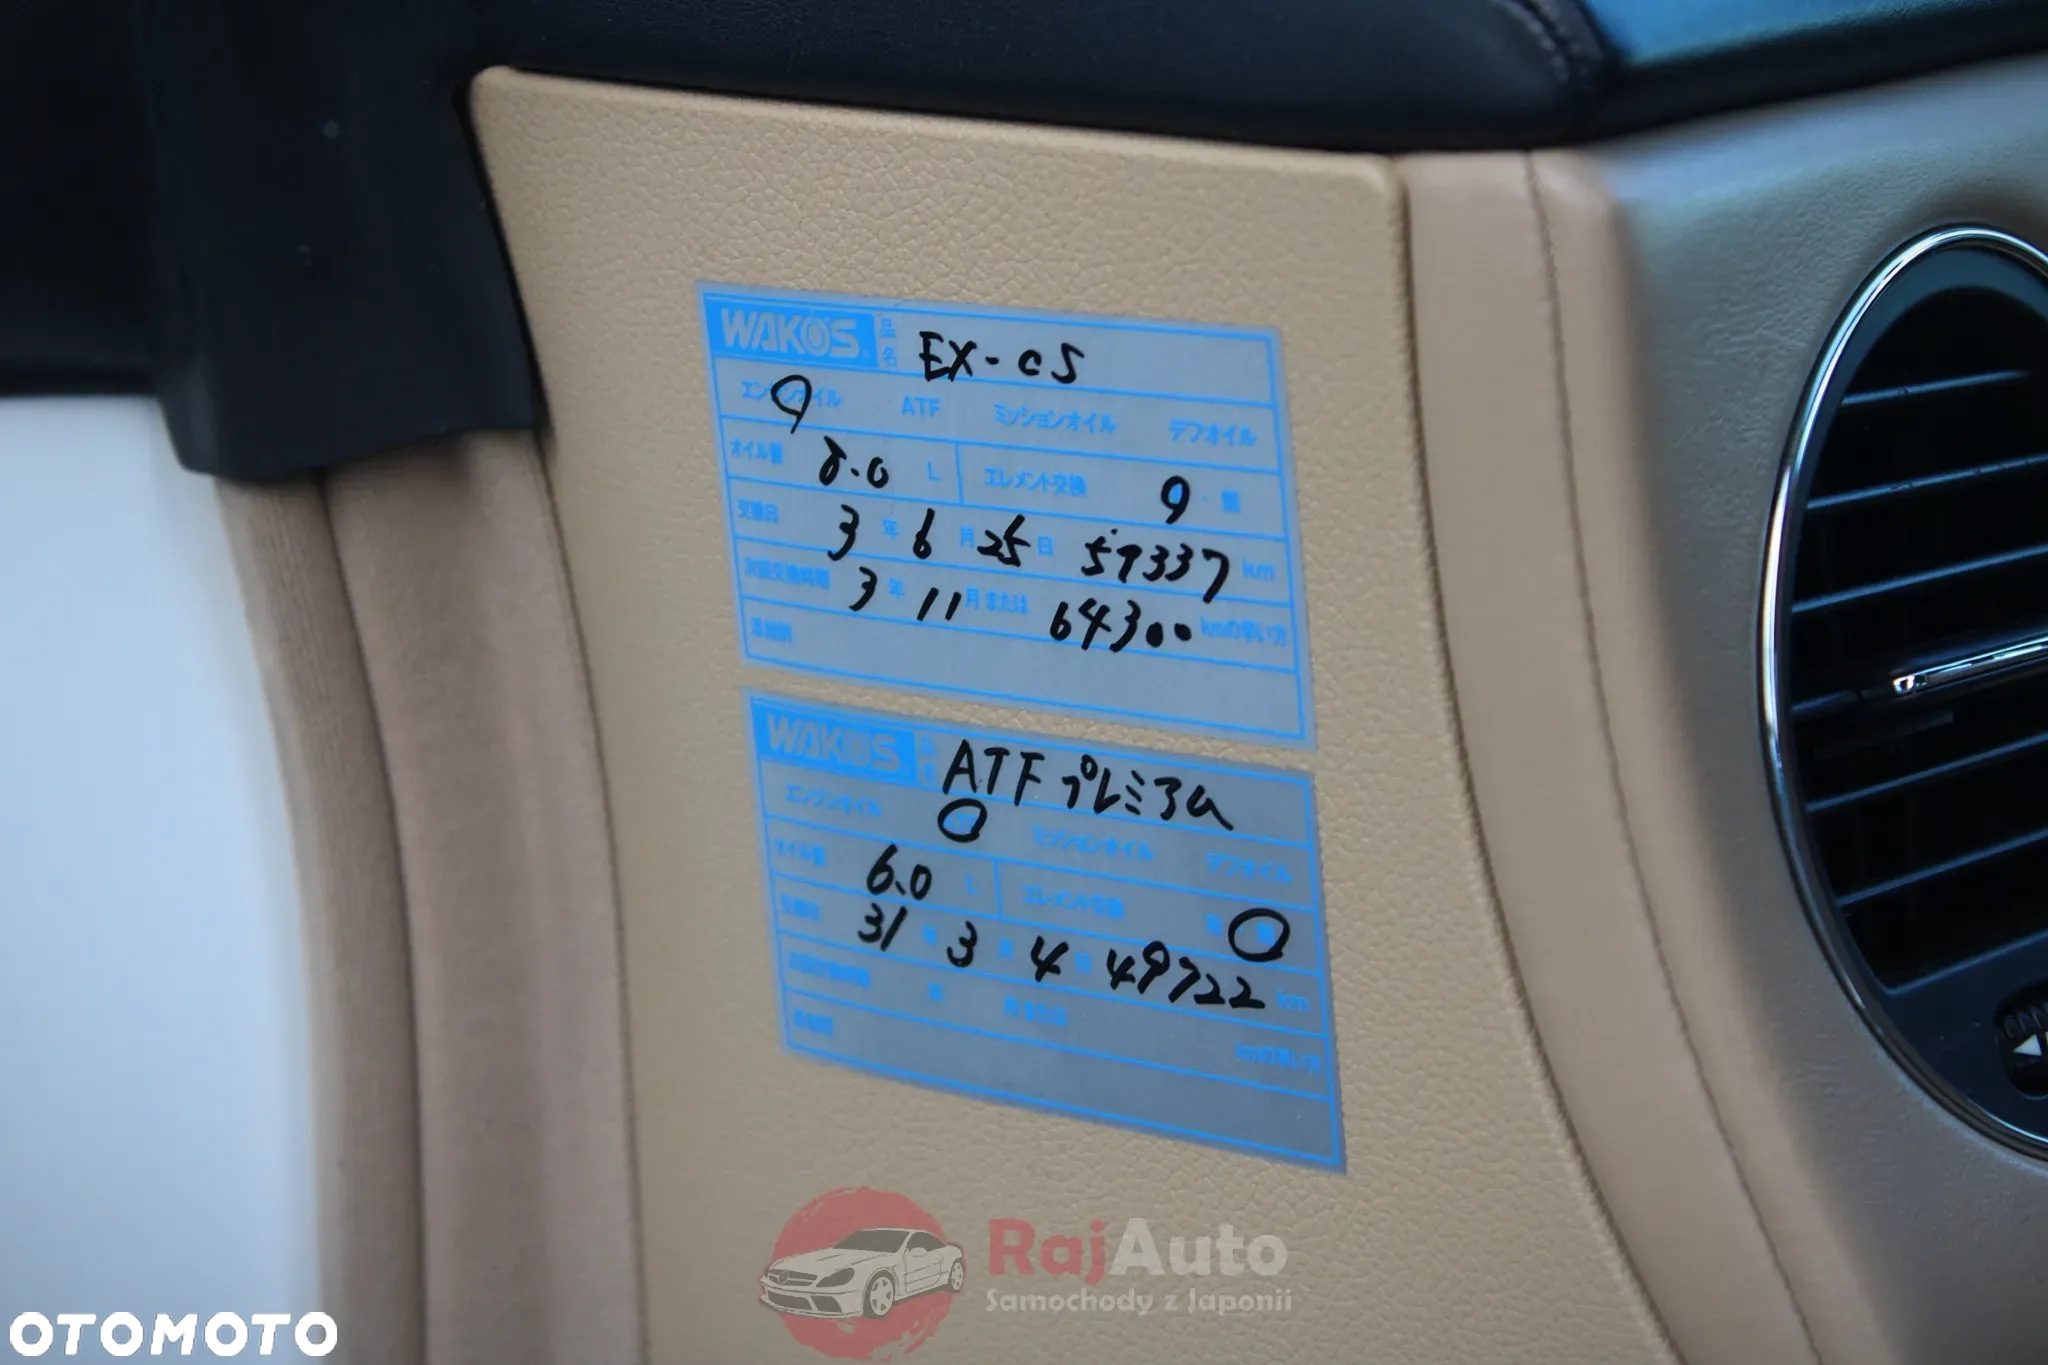 WAKO'S 品名 EX-CS
エンジンオイル ATF ミッションオイル デフオイル
オイル量 8.0 L エレメント交換 有・無
交換日 3年 6月 25日 59337 km
次回交換時期 3年 11月または 64300 kmの早い方
添加剤
WAKO'S 品名 ATFプレミアム
エンジンオイル ミッションオイル デフオイル
オイル量 6.0 L エレメント交換
交換日 31年 3月 4日 49722 km
次回交換時期 年 月または kmの早い方
添加剤
RajAuto
Samochody z Japonii
OTOMOTO